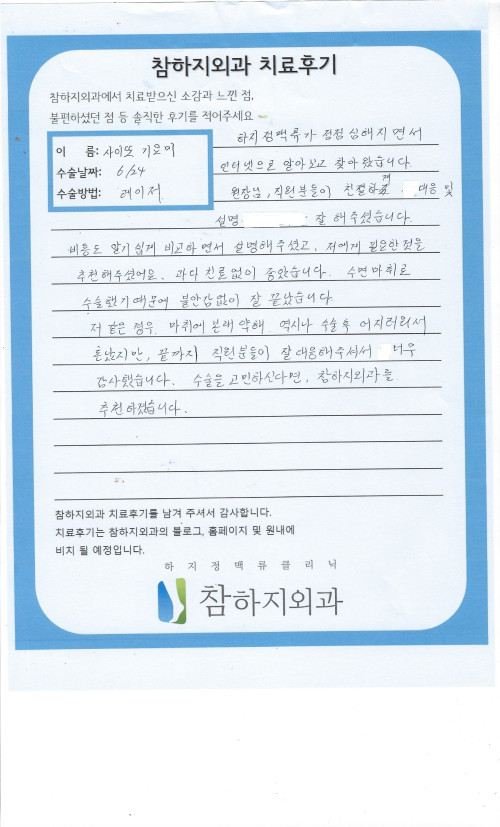 참하지외과 치료후기
참하지외과에서 치료받으신 소감과 느낀 점,
불편하셨던 점 등 솔직한 후기를 적어주세요
이 름: 사이또 기요미
수술날짜: 6/24
수술방법: 레이저
하지정맥류가 점점 심해지면서
인터넷으로 알아보고 찾아왔습니다
원장님, 직원분들이 친절하게 대응 및
설명 잘 해주셨습니다.
비용도 알기쉽게 비교하면서 설명해주셨고, 저에게 필요한것을
추천해주셨어요. 과다 진료없이 좋았습니다. 수면마취로
수술했기때문에 불안감없이 잘 끝났습니다
저 같은 경우, 마취에 본래 약해. 역시나 수술후 어지러워서
혼났지만, 끝까지 직원분들이 잘 대응해주셔서 너무
감사했습니다. 수술을 고민하신다면, 참하지외과를
추천하겠습니다.
참하지외과 치료후기를 남겨 주셔서 감사합니다.
치료후기는 참하지외과의 블로그, 홈페이지 및 원내에
비치 될 예정입니다.
하지정맥류클리닉
참하지외과